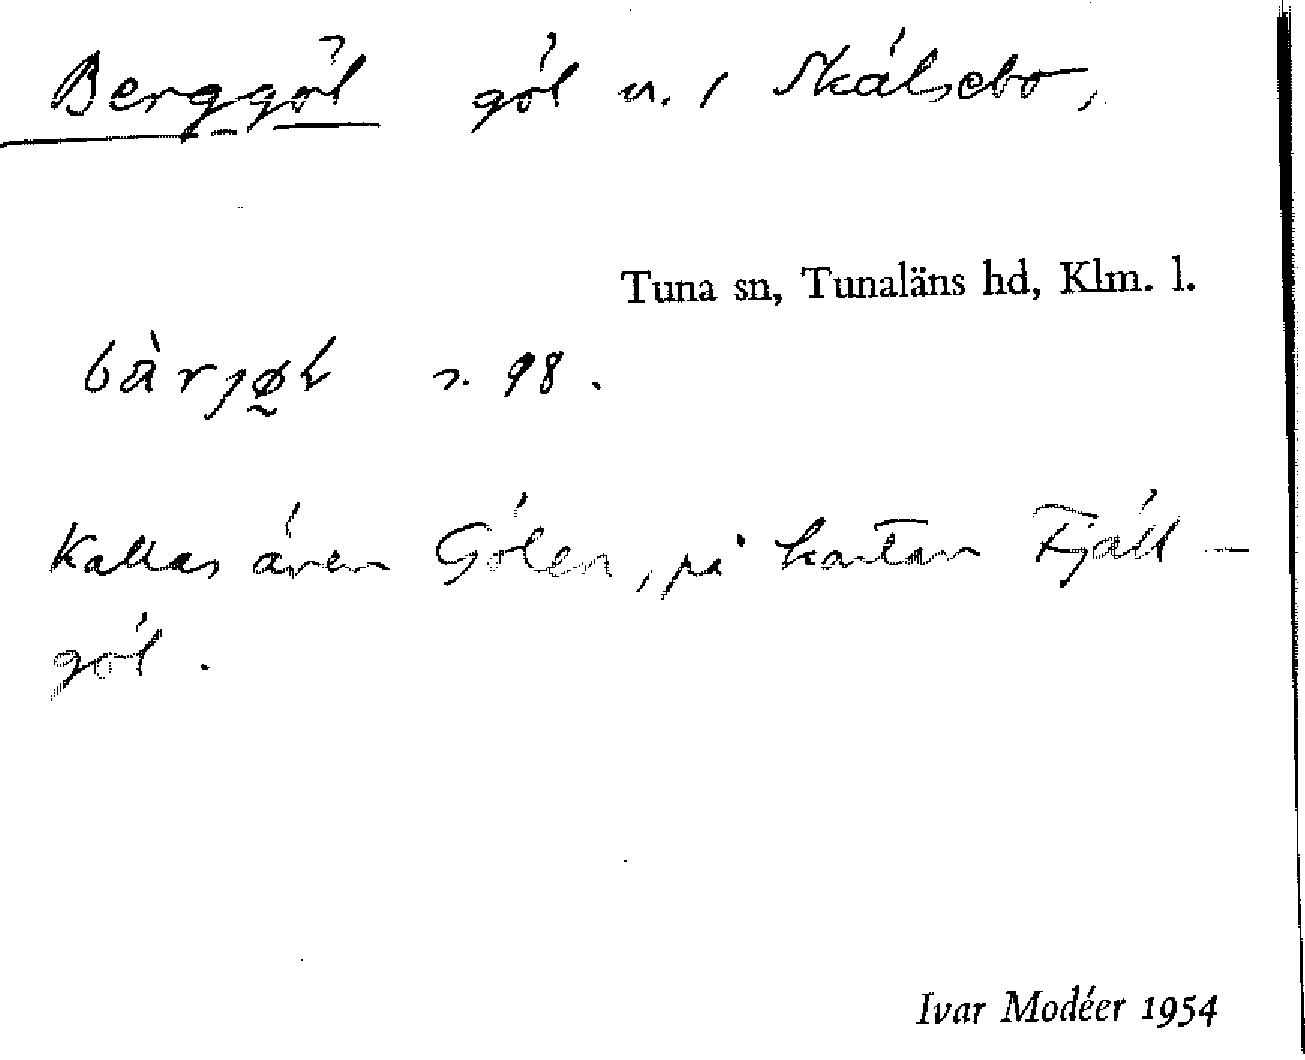 Berggöl göl n. i Skälsebo,
Tuna sn, Tunaläns hd, Klm. l.
bàrjøl s. 98.
Kallas även Gölen, på kartan Fjäll-
göl.
Ivar Modéer 1954